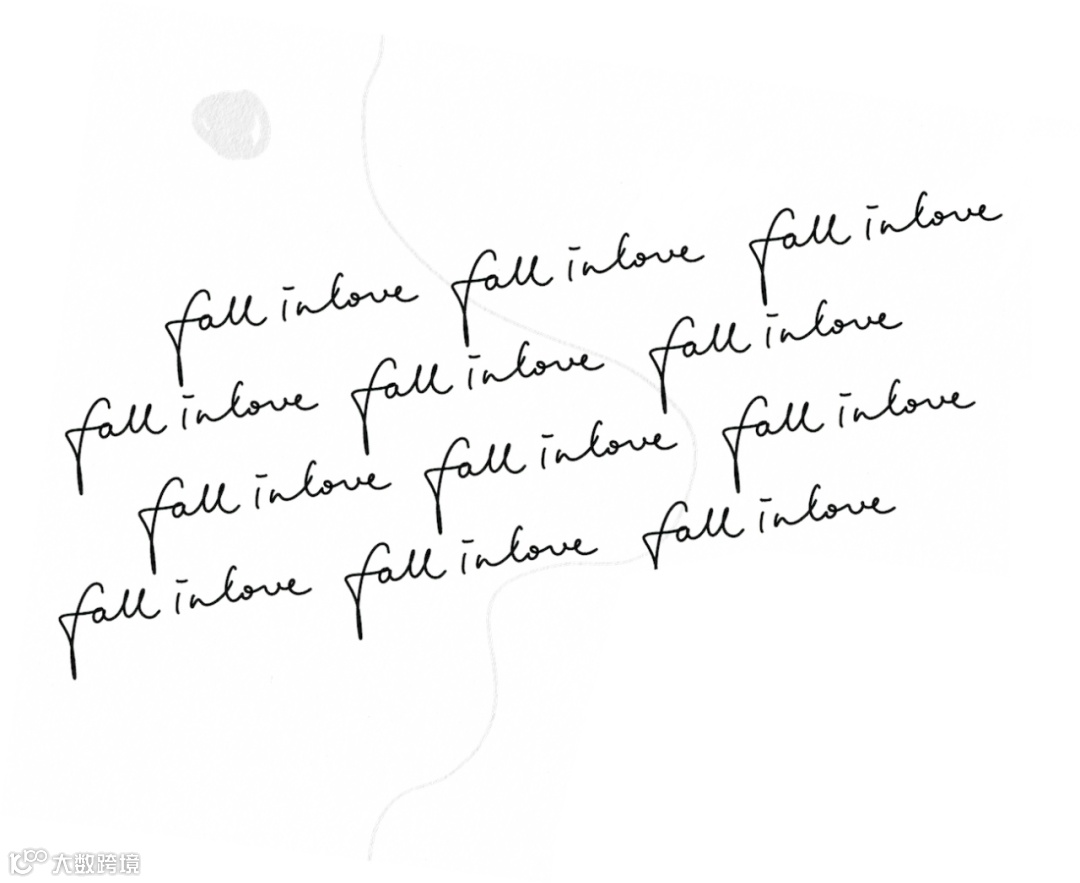 fall in love fall in love fall in love
fall in love fall in love fall in love
fall in love fall in love fall in love
fall in love fall in love fall in love
大数跨境